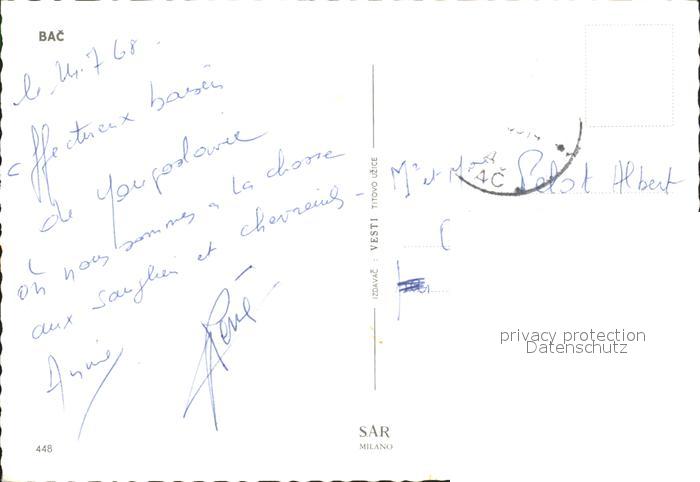 BAČ
le 14.7.68.
Affectueux baisers
de Yougoslavie
où nous sommes à la chasse
aux sanglier et chevreuils -
Annie René
448
IZDAVAČ: VESTI TITOVO UŽICE
SAR
MILANO
AČ
Mr et Pelot Albert
privacy protection
Datenschutz